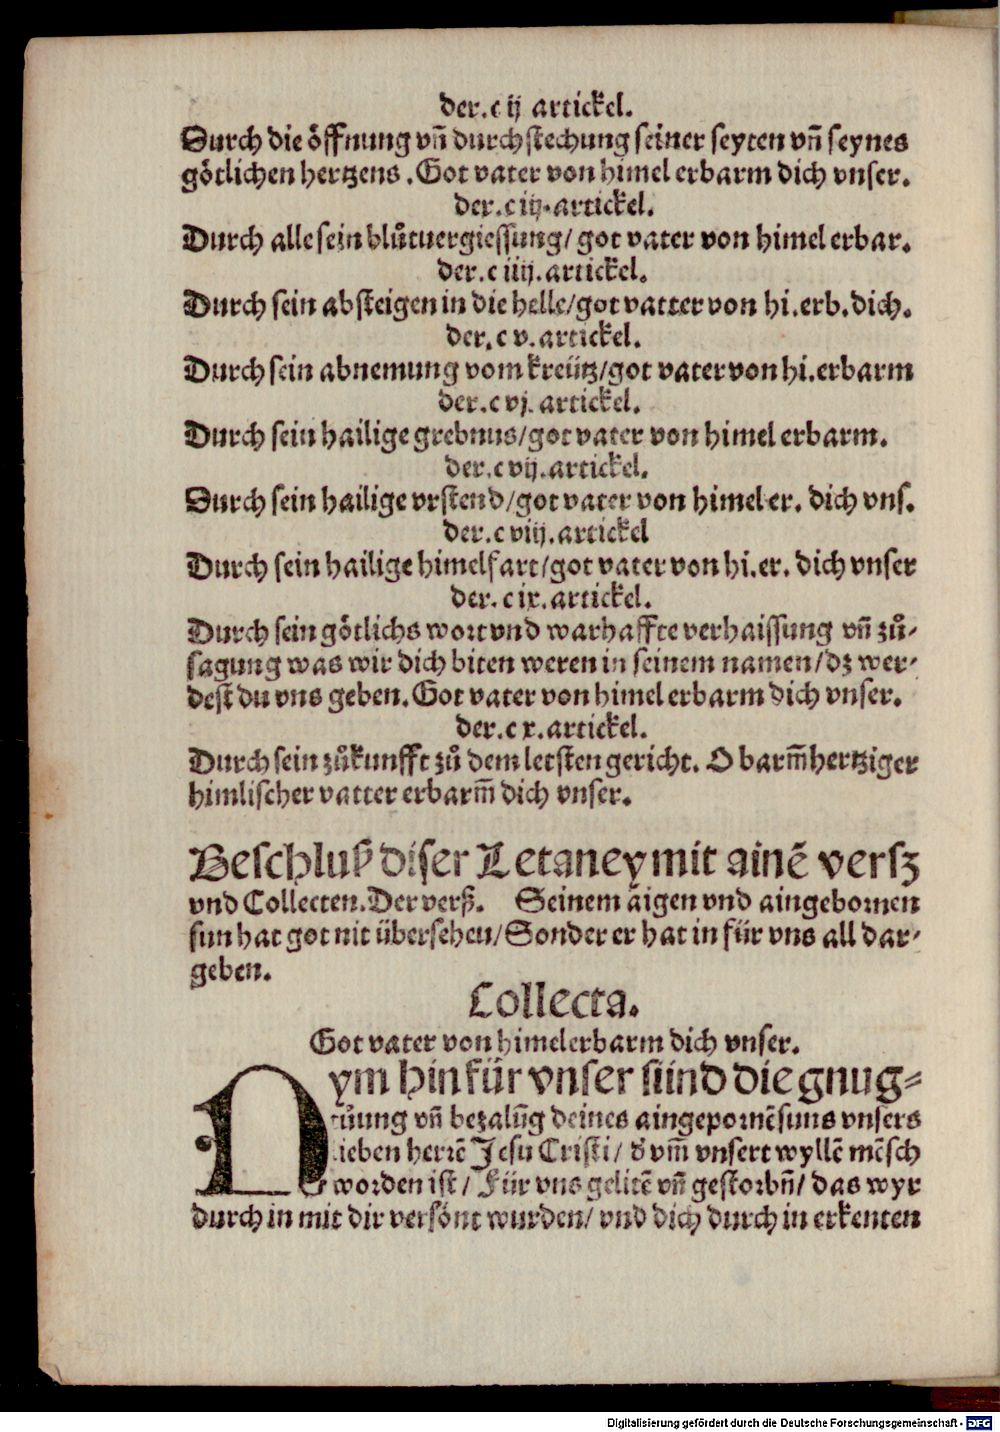 der. c ij artickel.
Durch die öffnung vn̄ durchstechung seiner seyten vn̄ seynes
götlichen hertzens . Got vater von himel erbarm dich vnser.
der. c iij. artickel.
Durch alle sein blůtuergiessung/ got vater von himel erbar.
der. c iiij. artickel.
Durch sein absteigen in die helle/got vatter von hi.erb.dich.
der. c v. artickel.
Durch sein abnemung vom kreütz/got vater von hi.erbarm
der. c vj. artickel.
Durch sein hailige grebnus/got vater von himel erbarm.
der. c vij. artickel.
Durch sein hailige vrstend/got vater von himel er. dich vns.
der. c viij. artickel
Durch sein hailige himelfart/got vater von hi.er. dich vnser
der. c ix. artickel.
Durch sein götlichs wort vnd warhaffte verhaissung vn̄ zů-
sagung was wir dich biten weren in seinem namen/dz wer-
dest du vns geben. Got vater von himel erbarm dich vnser.
der. c x. artickel.
Durch sein zůkunfft zů dem letsten gericht. O barm̄hertziger
himlischer vatter erbarm̄ dich vnser.
Beschluß diser Letaney mit ainē versz
vnd Collecten. Der verß. Seinem aigen vnd aingebornen
sun hat got nit übersehen/ Sonder er hat in für vns all dar-
geben.
Collecta.
Got vater von himel erbarm dich vnser.
Nym hin für vnser sünd die gnug-
tůung vn̄ bezalūg deines aingepornē suns vnsers
lieben herrē Jesu Cristi/ d' vm̄ vnsert wyllē mēsch
worden ist/ Für vns gelitē vn̄ gestorbn̄/ das wyr
durch in mit dir versönt wurden/ vnd dich durch in erkenten
Digitalisierung gefördert durch die Deutsche Forschungsgemeinschaft - DFG